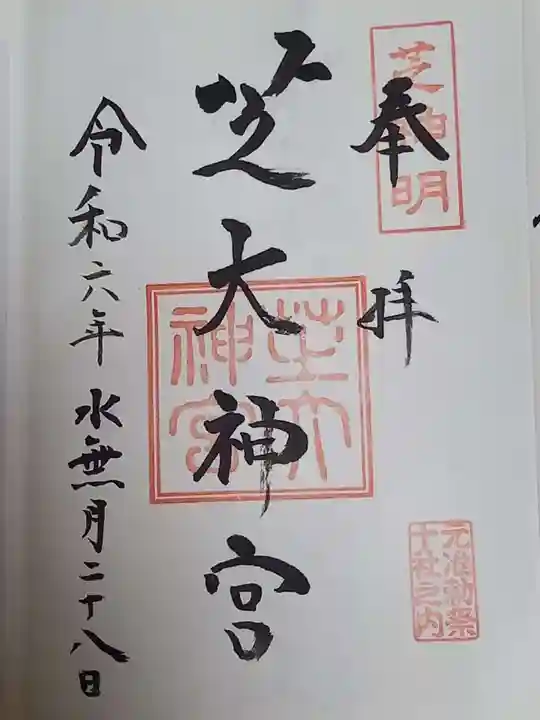 芝神明
奉拝
元准勅祭
十社之内
芝大神宮
芝大
神宮
令和六年水無月二十八日